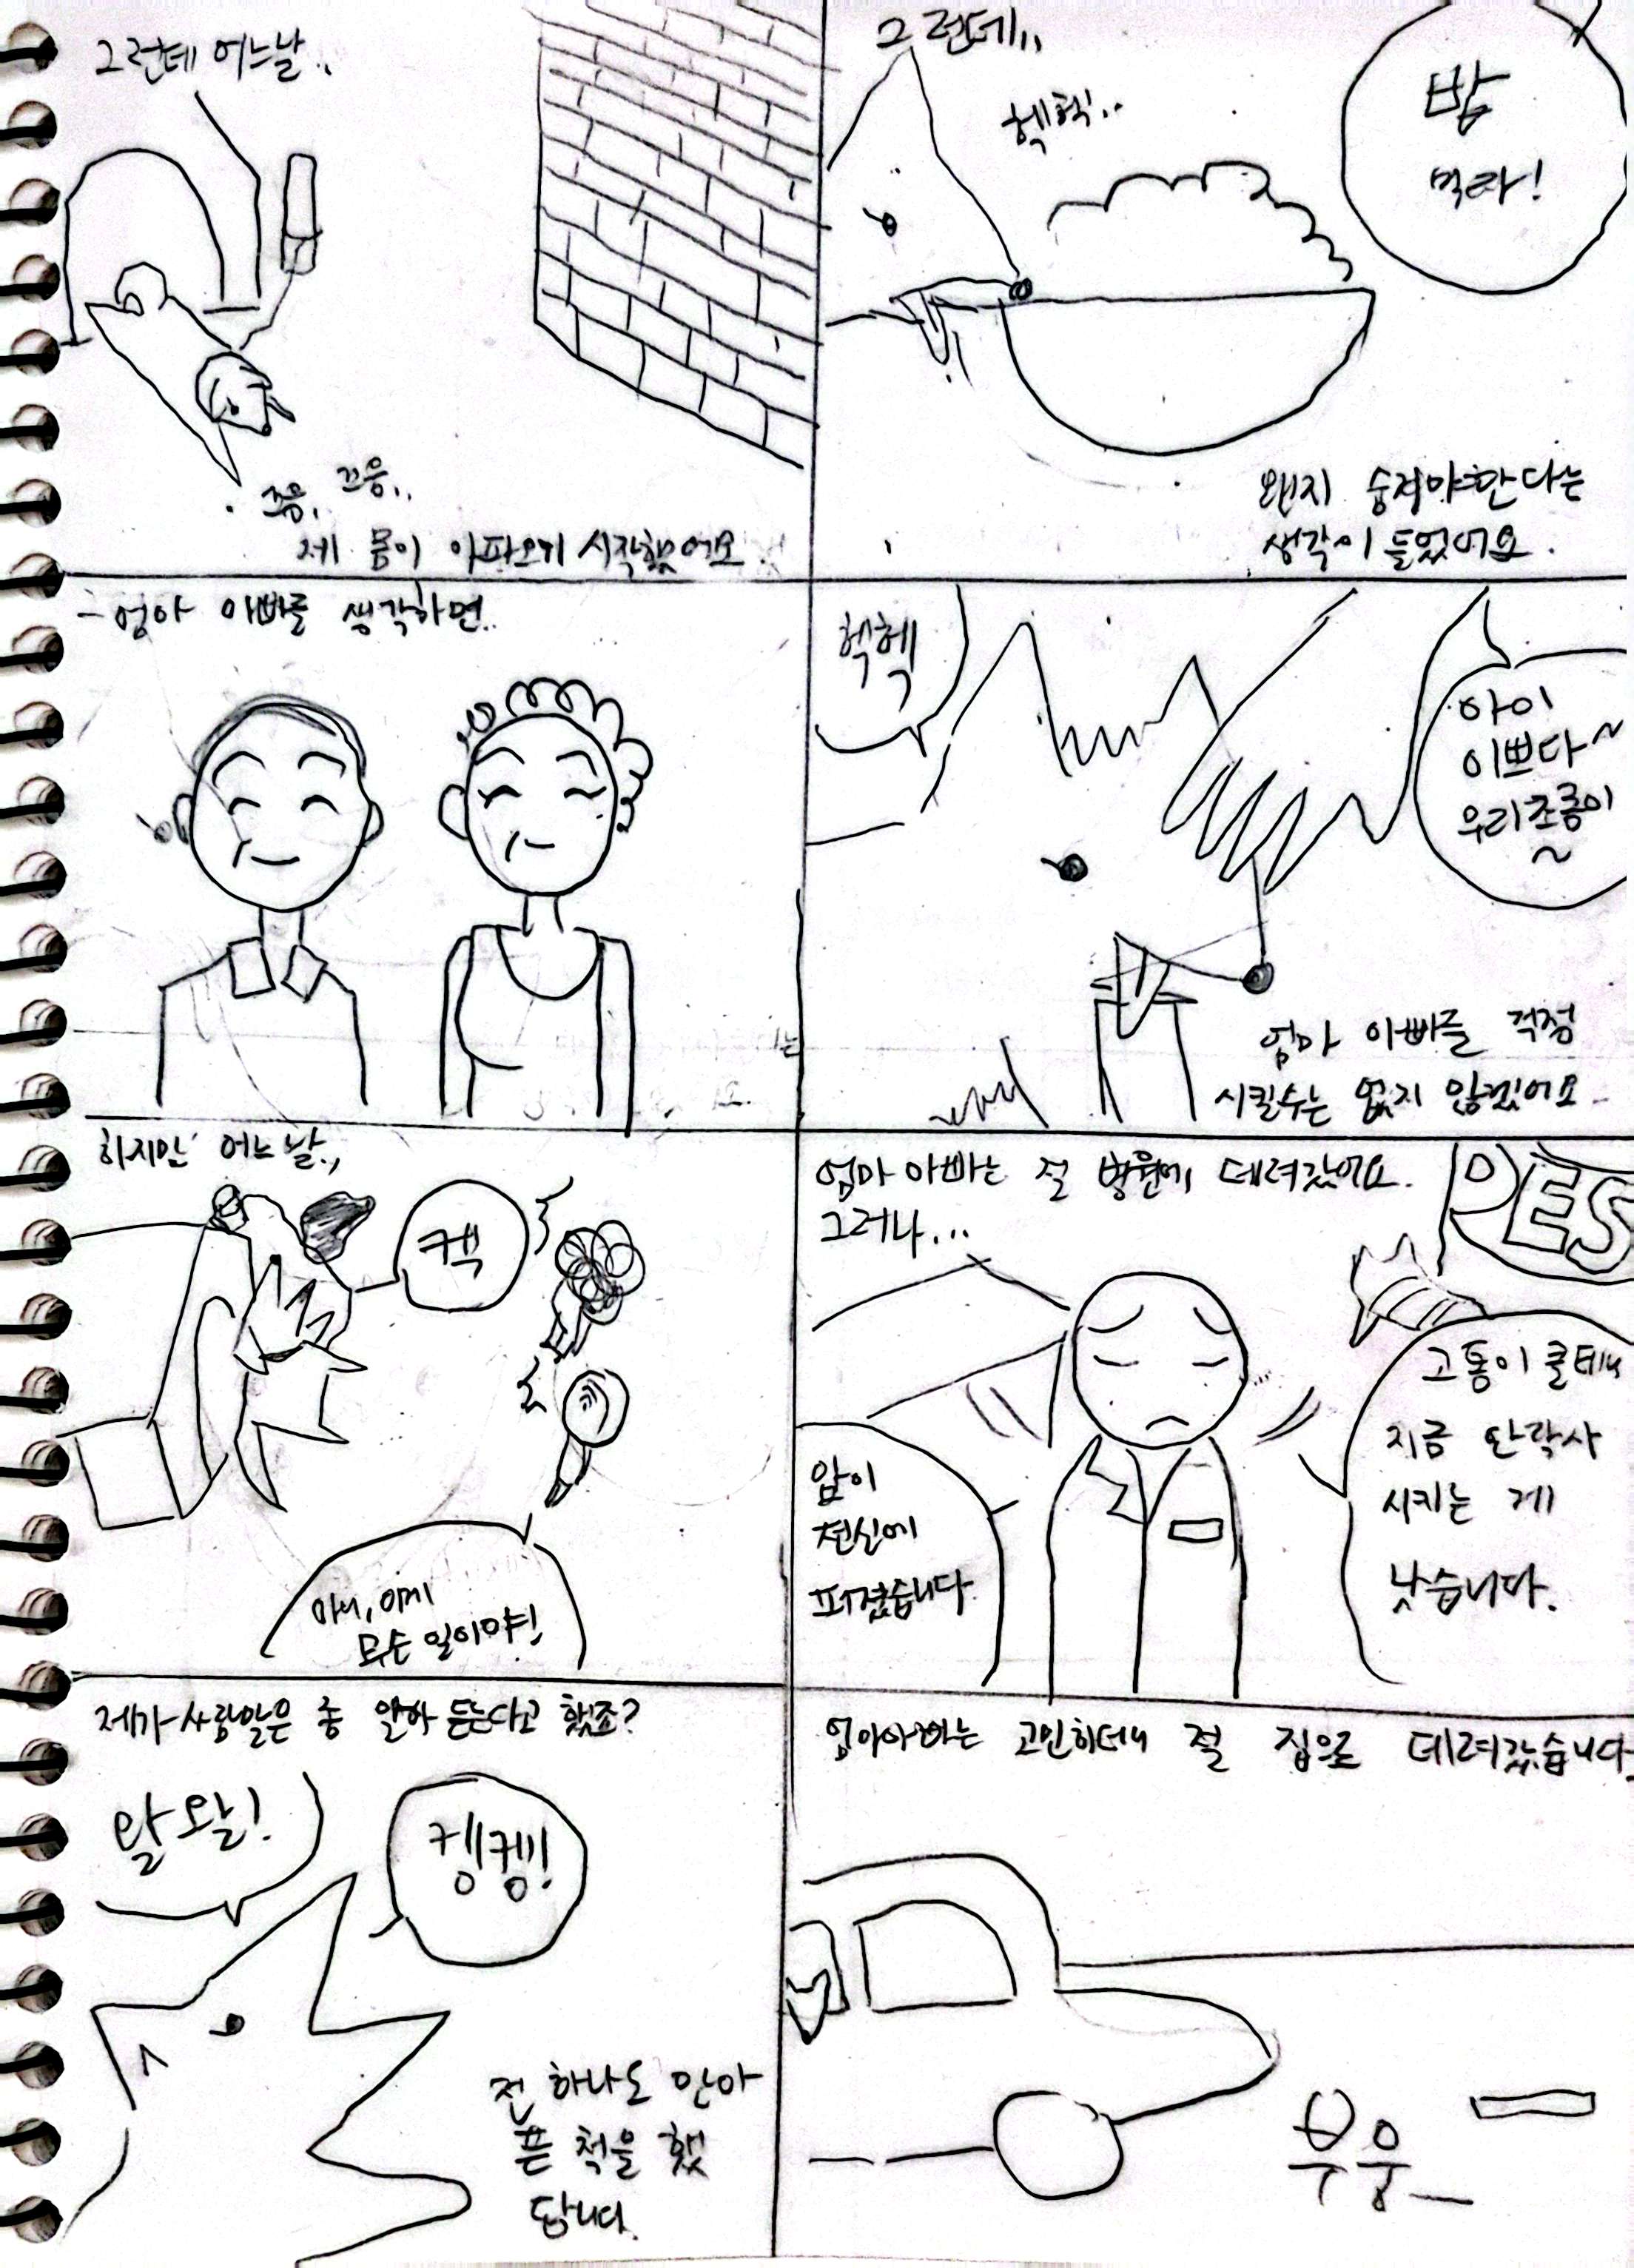 그런데 어느날..
끄응, 끄응..
제 몸이 아파오기 시작했어요
그런데..
헥헥..
밥
먹자!
왠지 숨겨야한다는
생각이 들었어요.
엄마 아빠를 생각하면..
헥헥
아이
이쁘다~
우리초롱이
~
엄마 아빠를 걱정
시킬수는 없지 않겠어요.
하지만 어느날..
켁
아니, 이게
무슨 일이야!
엄마아빠는 절 병원에 데려갔어요.
그러나...
PES
고통이 클테니
지금 안락사
시키는 게
낫습니다.
암이
전신에
퍼졌습니다.
제가 사람말은 좀 알아 듣는다고 했죠?
왈왈!
켕켕!
전 하나도 안아
픈 척을 했
답니다.
엄마아빠는 고민하더니 절 집으로 데려갔습니다.
부웅_